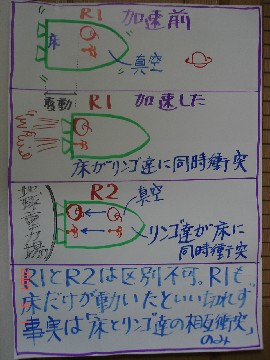 R1 加速前
床
真空
震動
R1 加速した
床がリンゴ達に同時衝突
地球重力場
R2
真空
リンゴ達が床に
同時衝突
R1とR2は区別不可。R1も
床だけが動いたといい切れず
事実は「床とリンゴ達の相互衝突」
のみ